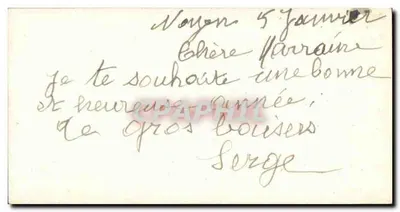 Noyen 5 Janvier
Chère Marraine
je te souhaite une bonne
et heureuse année.
De gros baisers
Serge